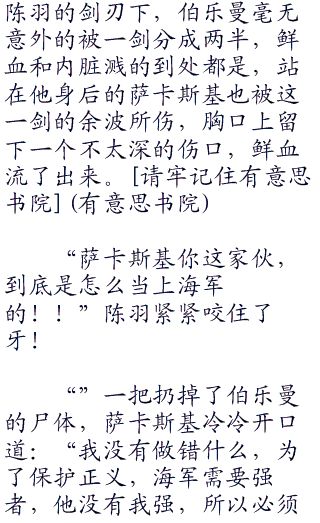 陈羽的剑刃下，伯乐曼毫无
意外的被一剑分成两半，鲜
血和内脏溅的到处都是，站
在他身后的萨卡斯基也被这
一剑的余波所伤，胸口上留
下一个不太深的伤口，鲜血
流了出来。[请牢记住有意思
书院] (有意思书院)
“萨卡斯基你这家伙，
到底是怎么当上海军
的！！”陈羽紧紧咬住了
牙！
“”一把扔掉了伯乐曼
的尸体，萨卡斯基冷冷开口
道：“我没有做错什么，为
了保护正义，海军需要强
者，他没有我强，所以必须